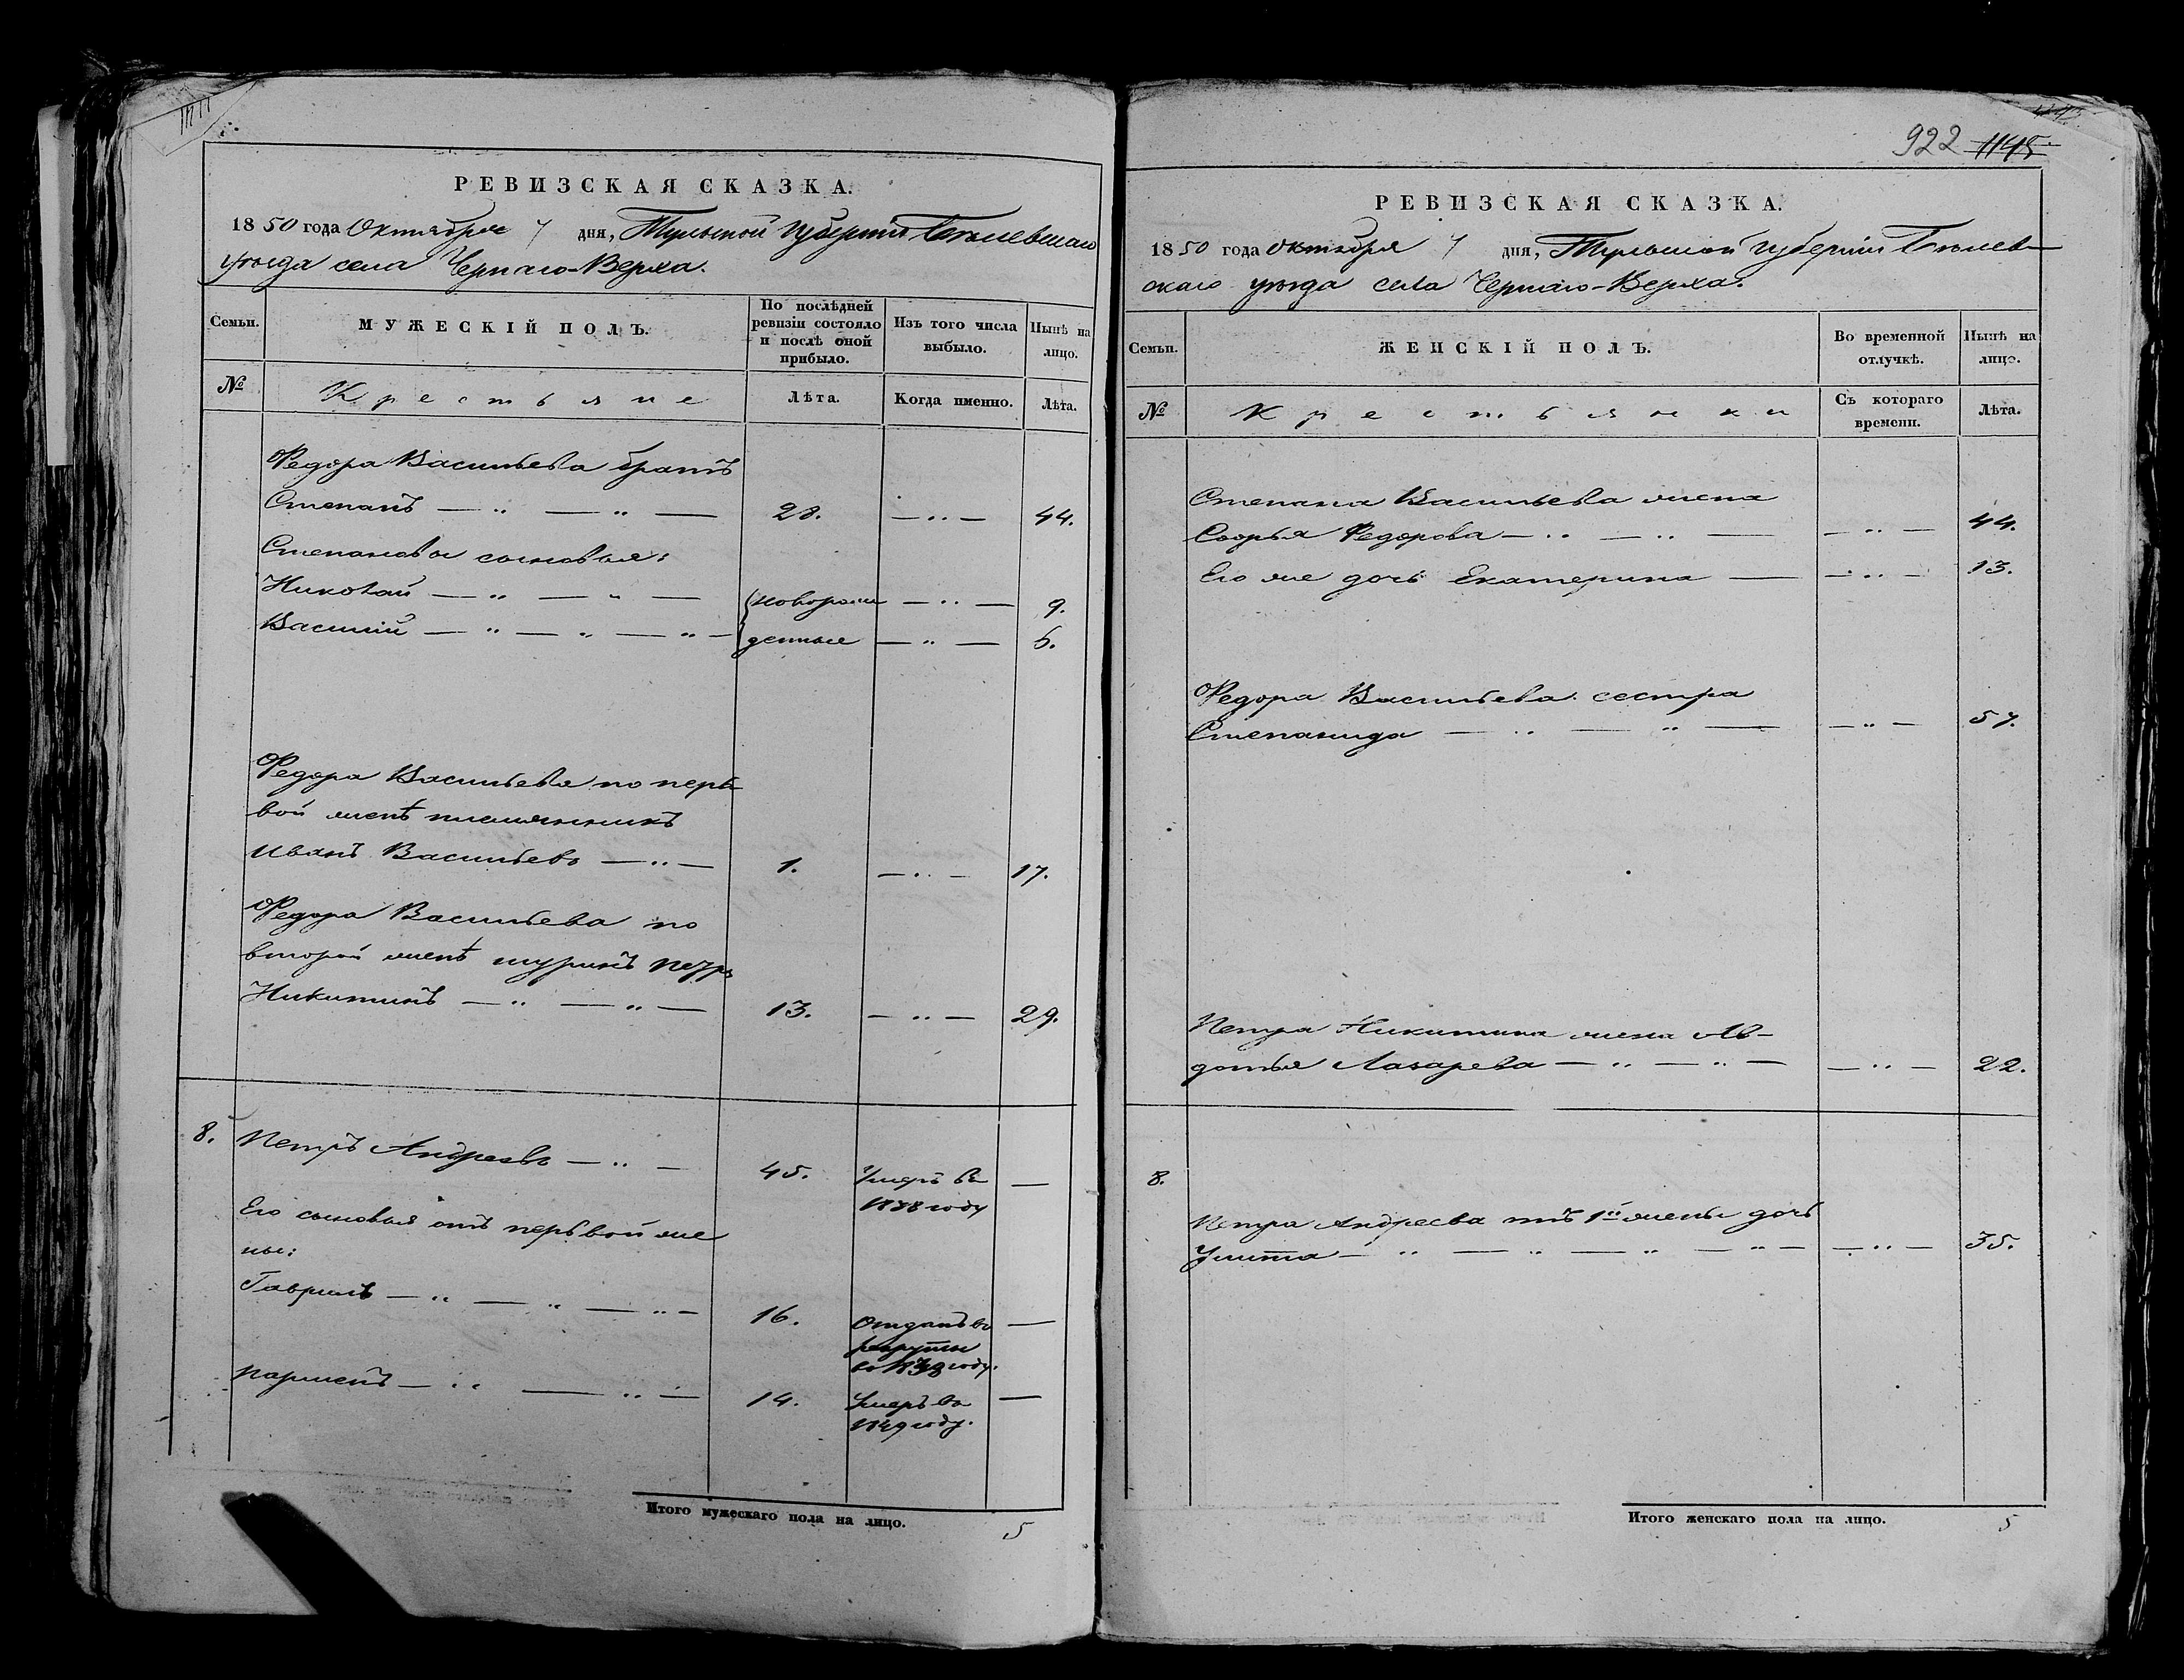 РЕВИЗСКАЯ СКАЗКА.
1850 года Октября 7 дня, Тульской губернiи Бѣлевскаго
уѣзда села Чернаго-Верха.
Семьи.
МУЖЕСКІЙ ПОЛЪ.
По послѣдней
ревизіи состояло
и послѣ оной
прибыло.
Изъ того числа
выбыло.
Нынѣ на
лицо.
№
Крестьяне
Лѣта.
Когда именно.
Лѣта.
Федора Васильева братъ
Степанъ — „ — „ — 28. — „ — 44.
Степановы сыновья:
Николай — „ — „ — новорож — „ — 9.
Василій — „ — „ — „ — денные — „ — 6.
Федора Васильева по перь
вой женѣ племянникъ
Иванъ Васильевъ — „ — 1. — „ — 17.
Федора Васильева по
второй женѣ шуринъ Петръ
Никитинъ — „ — „ — 13. — „ — 29.
8. Петръ Андреевъ — „ — 45. Умеръ въ —
1838 году
Его сыновья отъ первой же
ны:
Гаврилъ — „ — „ — „ — 16. Отданъ въ —
рекруты
въ 1838 году.
Парменъ — „ — „ — 14. Умеръ въ —
1849 году.
Итого мужескаго пола на лицо. 5
922 1145
РЕВИЗСКАЯ СКАЗКА.
1850 года Октября 7 дня, Тульской губернiи Бѣлев-
скаго уѣзда села Чернаго-Верха.
Семьи.
ЖЕНСКІЙ ПОЛЪ.
Во временной
отлучкѣ.
Нынѣ на
лицо.
№
Крестьянки
Съ котораго
времени.
Лѣта.
Степана Васильева жена
Софья Федорова — „ — „ — — „ — 44.
Его же дочь Екатерина — — „ — 13.
Федора Васильева сестра
Степанида — „ — „ — — „ — 57.
Петра Никитина жена Ав-
дотья Лазарева — „ — „ — — „ — 22.
8.
Петра Андреева отъ 1й жены дочь
Улита — „ — „ — „ — „ — — „ — 35.
Итого женскаго пола на лицо. 5